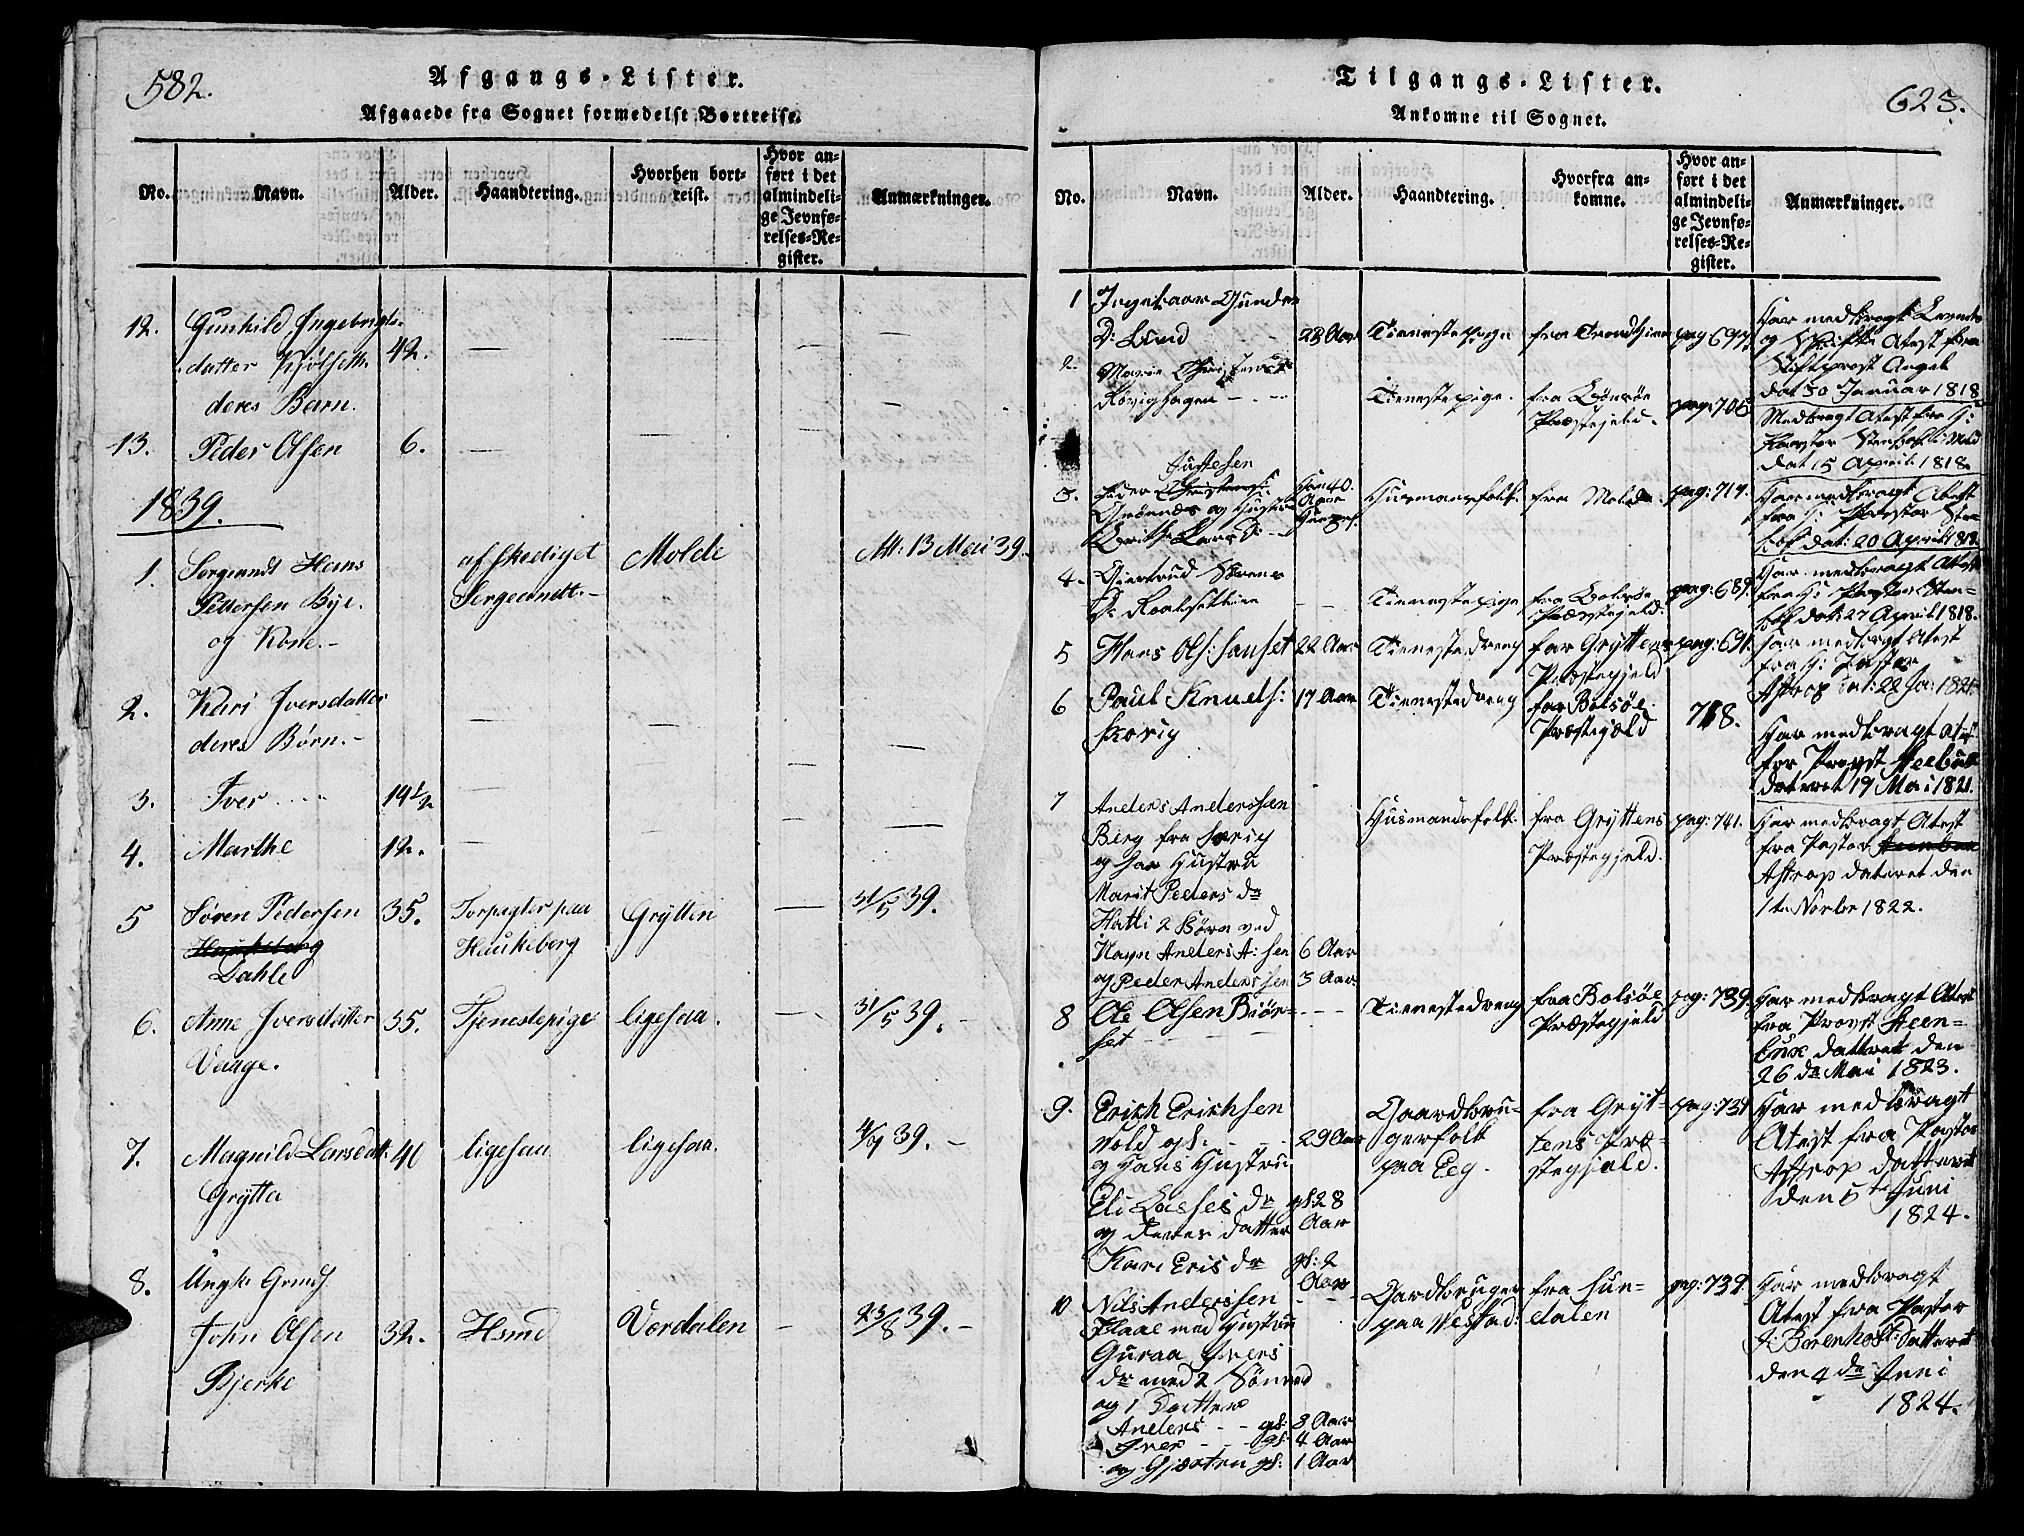 582.
Afgangs-Lister.
Afgaaede fra Sognet formedelst Bortreise.
No.
Navn.
Alder.
Haandtering.
Hvorhen bort-
reist.
Hvor an-
ført i det
almindeli-
ge Jevnfø-
relses-Re-
gister.
Anmærkninger.
12.
Gunhild Ingebrigts-
datter Kjølseth
42.
—
—
deres Barn.
—
13.
Peder Olsen
6.
—
—
—
1839.
1.
Sergeandt Hans
Pettersen Bye.
og Kone.-
afskediget
Sergeandt.-
Molde
Att: 13 Mai 39.
2.
Kari Iversdatter
deres Børn.-
—
—
—
3.
Iver
14½
—
—
—
4.
Marthe
12.
—
—
—
5
Søren Pedersen
Haukeberg
Dahle
35.
Forpagter paa
Haukeberg
Grytten
—
31/5 39.
6.
Ane Iversdatter
Vaage.
35.
Tjenestepige
ligesaa.
31/5 39.-
7.
Magnild Larsdatt.
Grytta
40
ligesaa
ligesaa.
4/7 39.-
8.
Ungk: Gmds.
John Olsen
Bjerke
32.
Hsmd
Verdalen
—
23/8 39.-
Tilgangs-Lister.
Ankomne til Sognet.
625.
No.
Navn.
Alder.
Haandtering.
Hvorfra an-
komne.
Hvor an-
ført i det
almindeli-
ge Jevnfø-
relses-Re-
gister.
Anmærkninger.
1
Ingebaar Gunder
D: Lund
23 Aar
Tienestepige
fra Trondhiem
pag 697.
og Skifts Atest fra
Stiftprost Angel
dat 30 Januar 1818
2.
Marie
Røvighagen
Tienestepige.
fra Bolsøe
Præstegjeld.
pag: 706
Medbragt Atest fra H:
dat 15 April 1818.
3.
Justesen
Peder Christens:
Grønnes og Hustru
Berith Lars D:
Han 40.
Aar
Husmansfolk:
fra Molde.
pag: 717.
Har medbragt Atest
fra H: Pastor Sten-
bof dat: 20 April 1818
4.
Giertrud
D: Roalsetlien
Tienestepige
fra Bolsøe
Præstegjeld.
pag: 689.
Har medbragt Atest
fra H: Pastor Sten-
bof dat: 27 April 1818.
5
Hans Ols: Sanset
22 Aar
Tienestedreng
far Gryttens
Præstegjeld
pag: 691.
Har medbragt Atest
fra H: Pastor
Astrop dat: 22 Ja: 1821.
6
Paul Knuds:
Skorig
17 Aar
Tienestedreng
far Bolsøe
Præstegjeld
718.
Har medbragt Atest
far Proyst Steebuk
dateret 19 Mai 1821.
7
Anders Anderssen
Berg fra Sorig
og har Hustru
Marit Peders dr
Hatli 2 Børn ved
Navn Anders A: sen
6 Aar
og Peder Anderssen
3 Aar
Husmandsfolk.
fra Gryttens
Præstegjeld.
pag: 741.
Har medbragt Atest
fra Pastor
Astrop dateret den
1te Novbr 1822.
8
Ole Olsen Biør-
set
Tienestedreng
fra Bolsøe
Præstegjeld
pag: 739.
Har medbragt Atest
fra Proyst Steen-
bux dattret den
26 de Mai 1823.
9.
Erich Erichsen
Vold gl:
29 Aar
og Hans Hustru
Eli Lasses dr
gl: 28
Aar
og deres datter
Kari Eris dr
gl: 2
Aar
Gaardbru-
gerfolk
paa Eeg.
fra Gryt-
tens Præ-
stegjeld.
pag: 737
Har medbragt
Atest fra Pastor
Astrop datteret
den 5te Juni
1824.
10
Nils Anderssen
Flaae med Hustru
Guraa Ivers
dr med 2 Sønner
og 1 Datter
Anders gl:
3 Aar
Iver gl:
4 Aar
og Gjærtru gl:
1 Aar
Gardbruger
paa Nestad:
fra Sun-
dalen
pag: 739.
Har medbragt
Atest fra Pastor
J. Barenholt: Datteret
den 4 de Juni
1824.